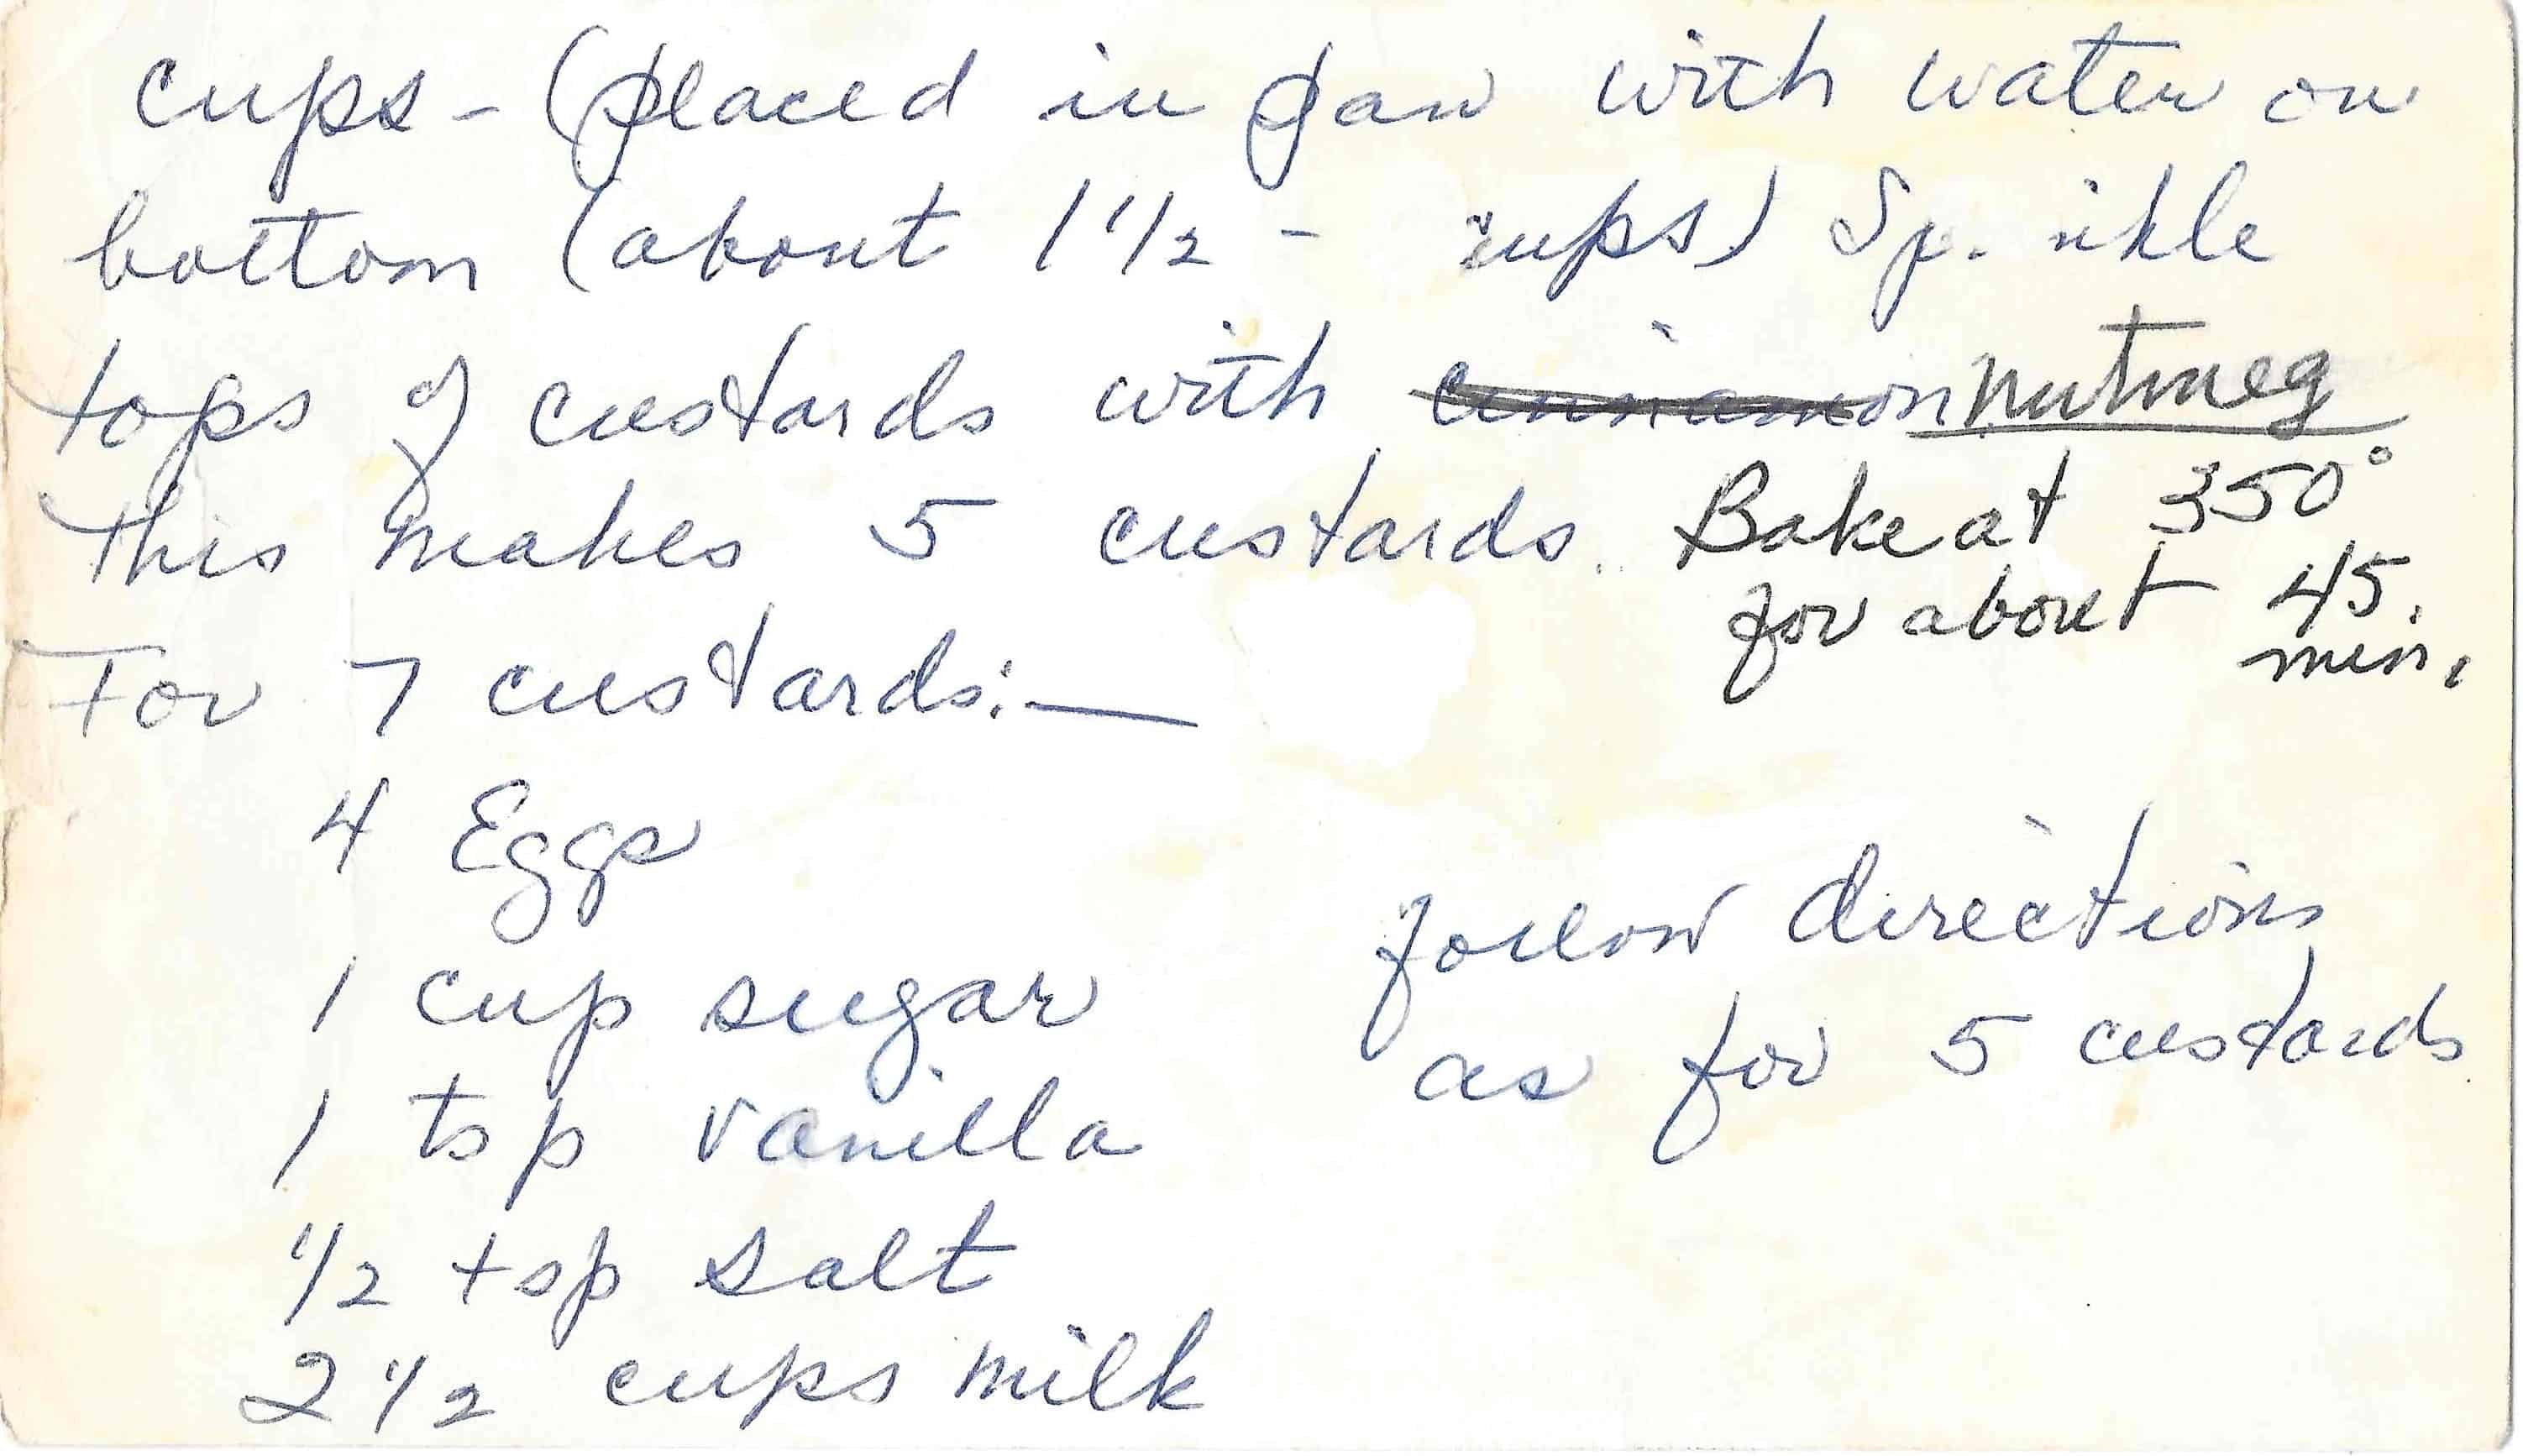 cups - (placed in pan with water on
bottom (about 1 1/2 - cups) Sprinkle
tops of custards with cinnamon nutmeg
This makes 5 custards. Bake at 350°
for about 45 min.
For 7 custards:—
4 Eggs
1 cup sugar
1 tsp vanilla
1/2 tsp salt
2 1/2 cups milk
follow directions
as for 5 custards